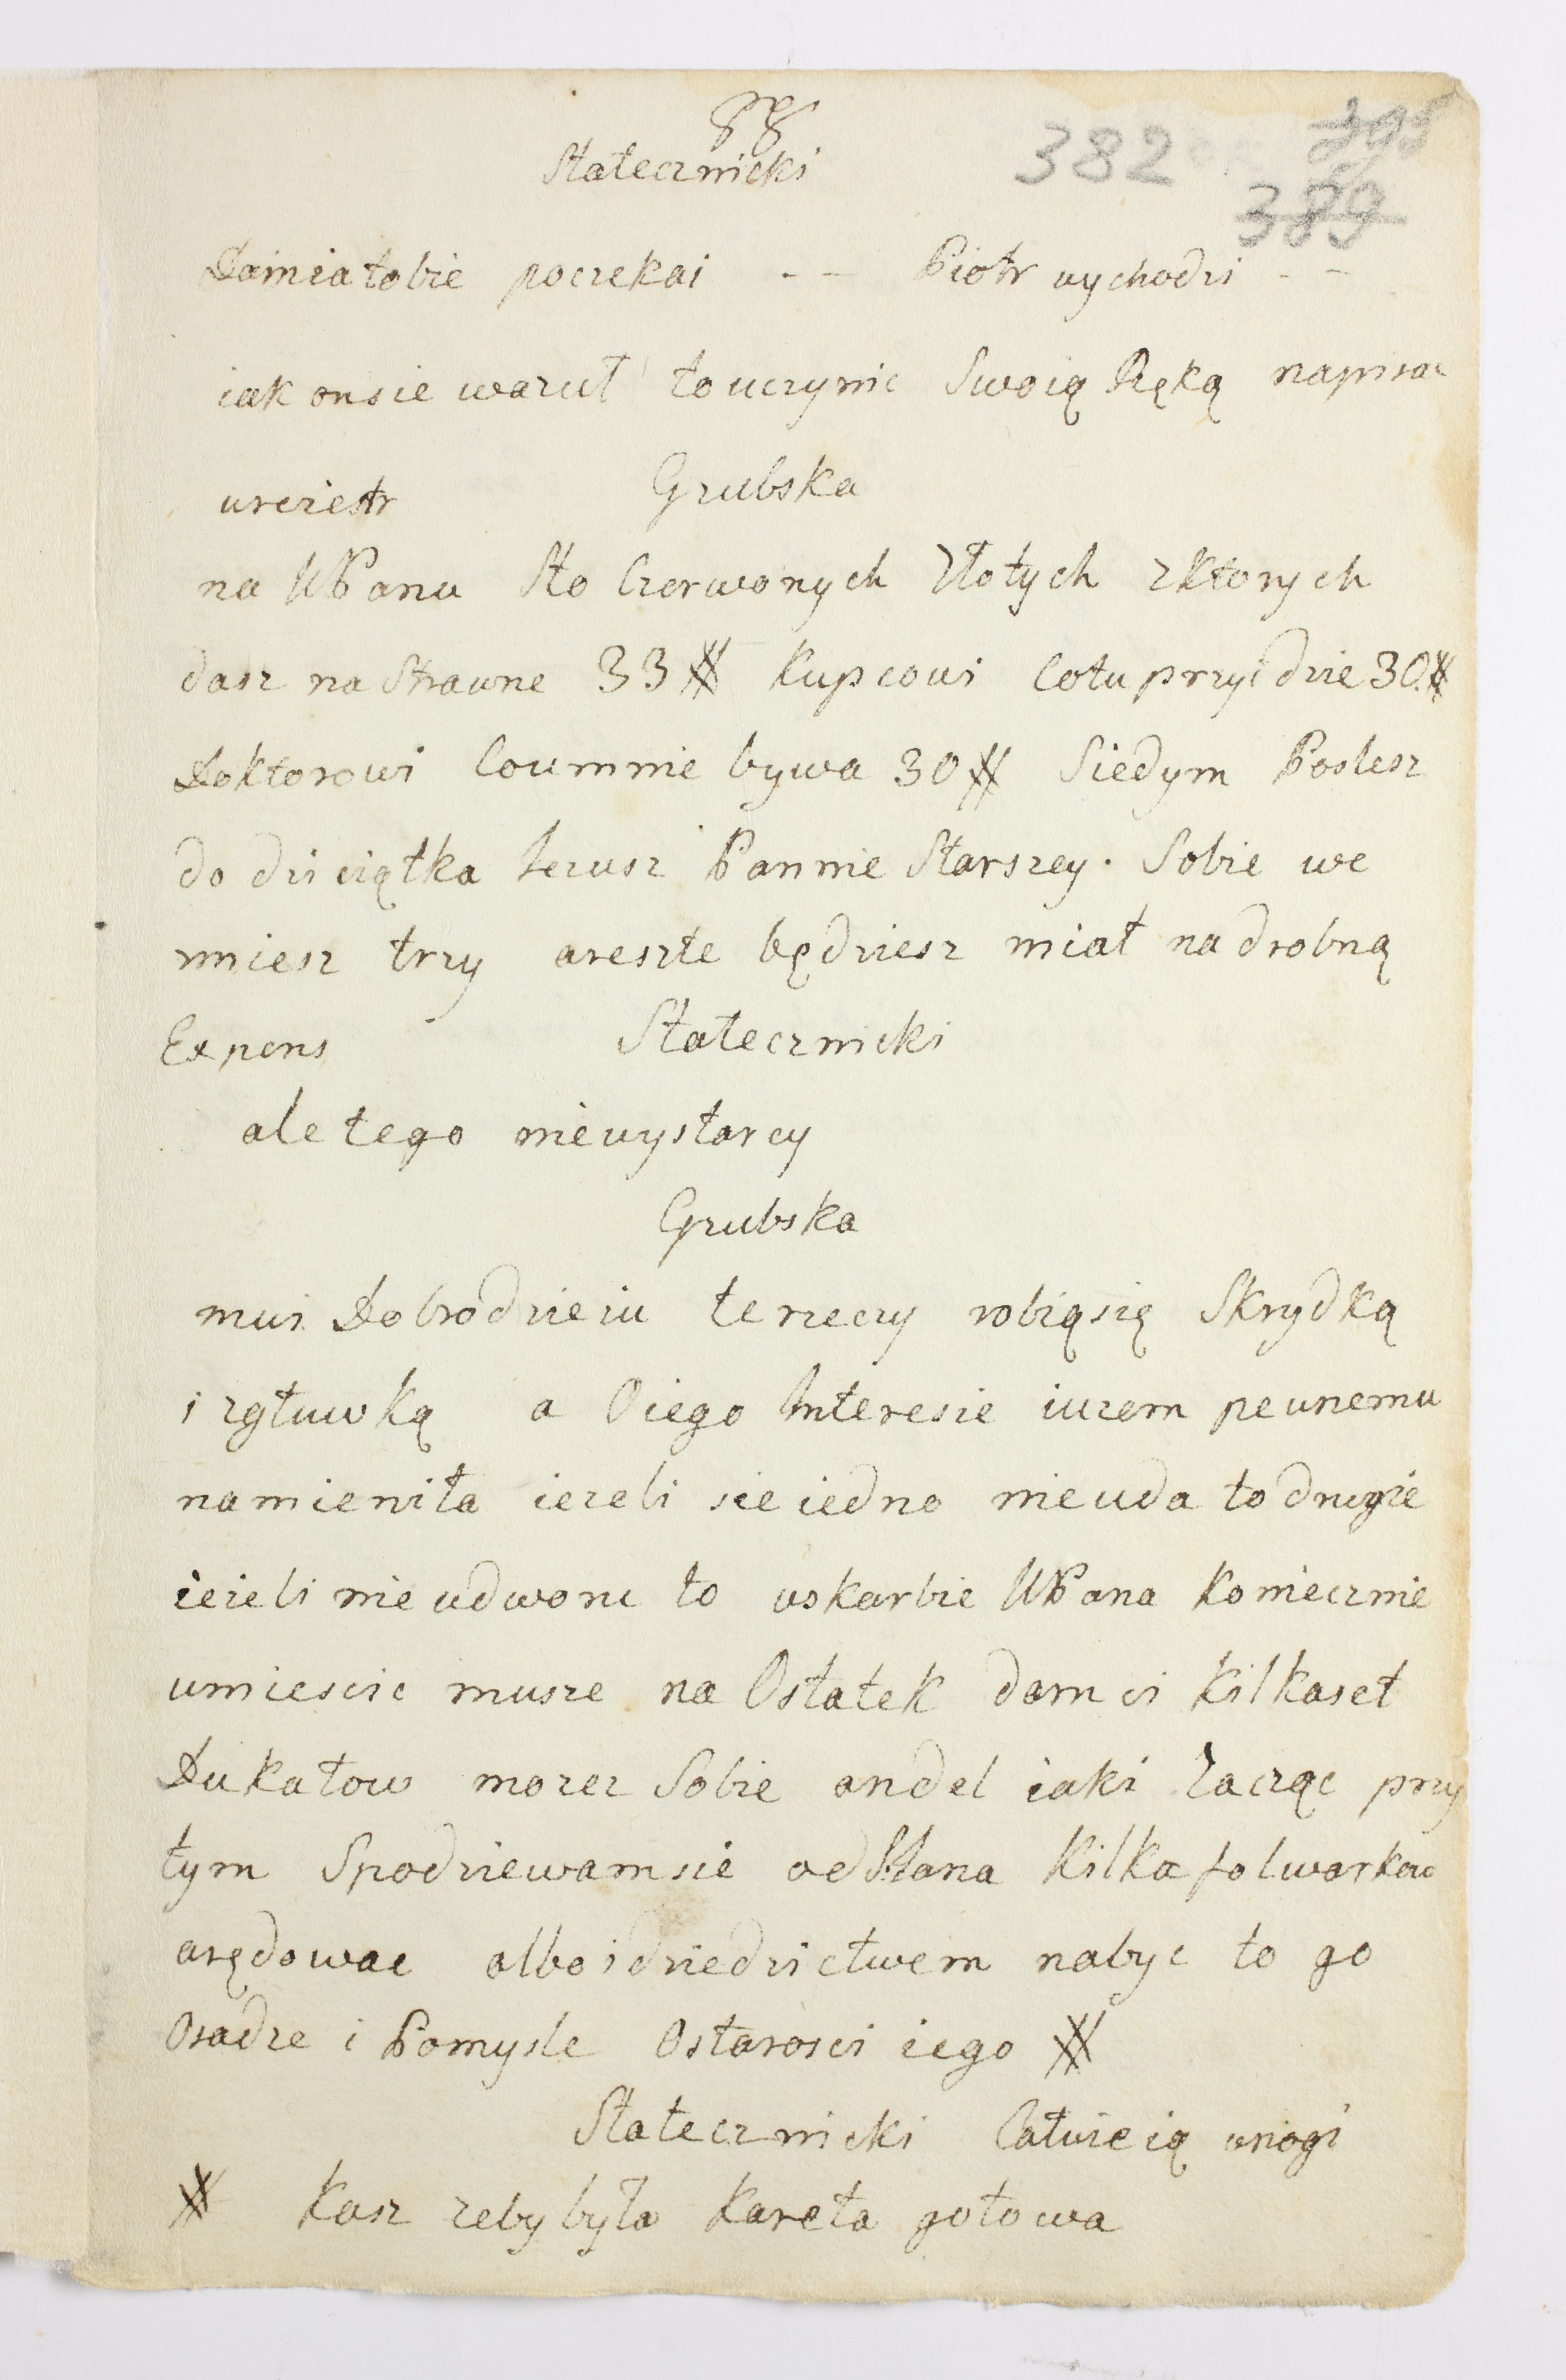 Statecznicki
382
389
Damia tobie poczekai - - Piotr vychodzi - -
iak onsie wazuł to uczynic Swoią Ręką napisac
vreiestr Grubska
na WPanu Sto Czerwonych Złotych zktorych
dasz na Strawne 33 # Kupcowi Cotu przyidzie 30 #
Doktorowi Coumnie bywa 30 # Siedym Poslesz
do dziciątka Jezusz Pannie Starszey. Sobie we
zmiesz trzy areszte będziesz miał na drobną
Expens Statecznicki
ale tego nievystarcy
Grubska
mui Dobrodzieiu te rzeczy robiąsię Skrydką
i zgłuwką a Oiego Interesie iuzem pevnemu
namieniła iezeli sie iedno nieuda to drugie
iezeli nie vdworze to vskarbie WPana Koniecznie
umiescic musze na Ostatek dam ci Kilkaset
Dukatow mozez Sobie andel iaki Zacząc przy
tym Spodziewamsie od Stana Kilka folwarkow
arędowac albo i dziedzictwem nabyc to go
Osadze i Pomysle Ostarosci iego #
Statecznicki Całuie ią vnogi
# Kasz zeby była Kareta gotowa